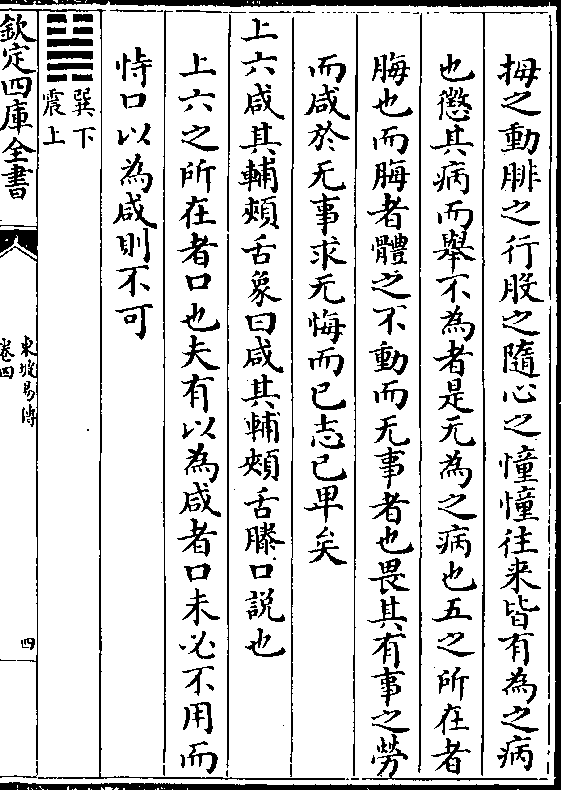 拇之動腓之行股之隨心之憧憧往来皆有為之病
也懲其病而舉不為者是无為之病也五之所在者
脢也而脢者體之不動而无事者也畏其有事之勞
而咸於无事求无悔而已志已卑矣
上六咸其輔頰舌象曰咸其輔頰舌滕口説也
上六之所在者口也夫有以為咸者口未必不用而
恃口以為咸則不可
䷟巽下
震上
欽定四庫全書
東坡易傳
卷四
四